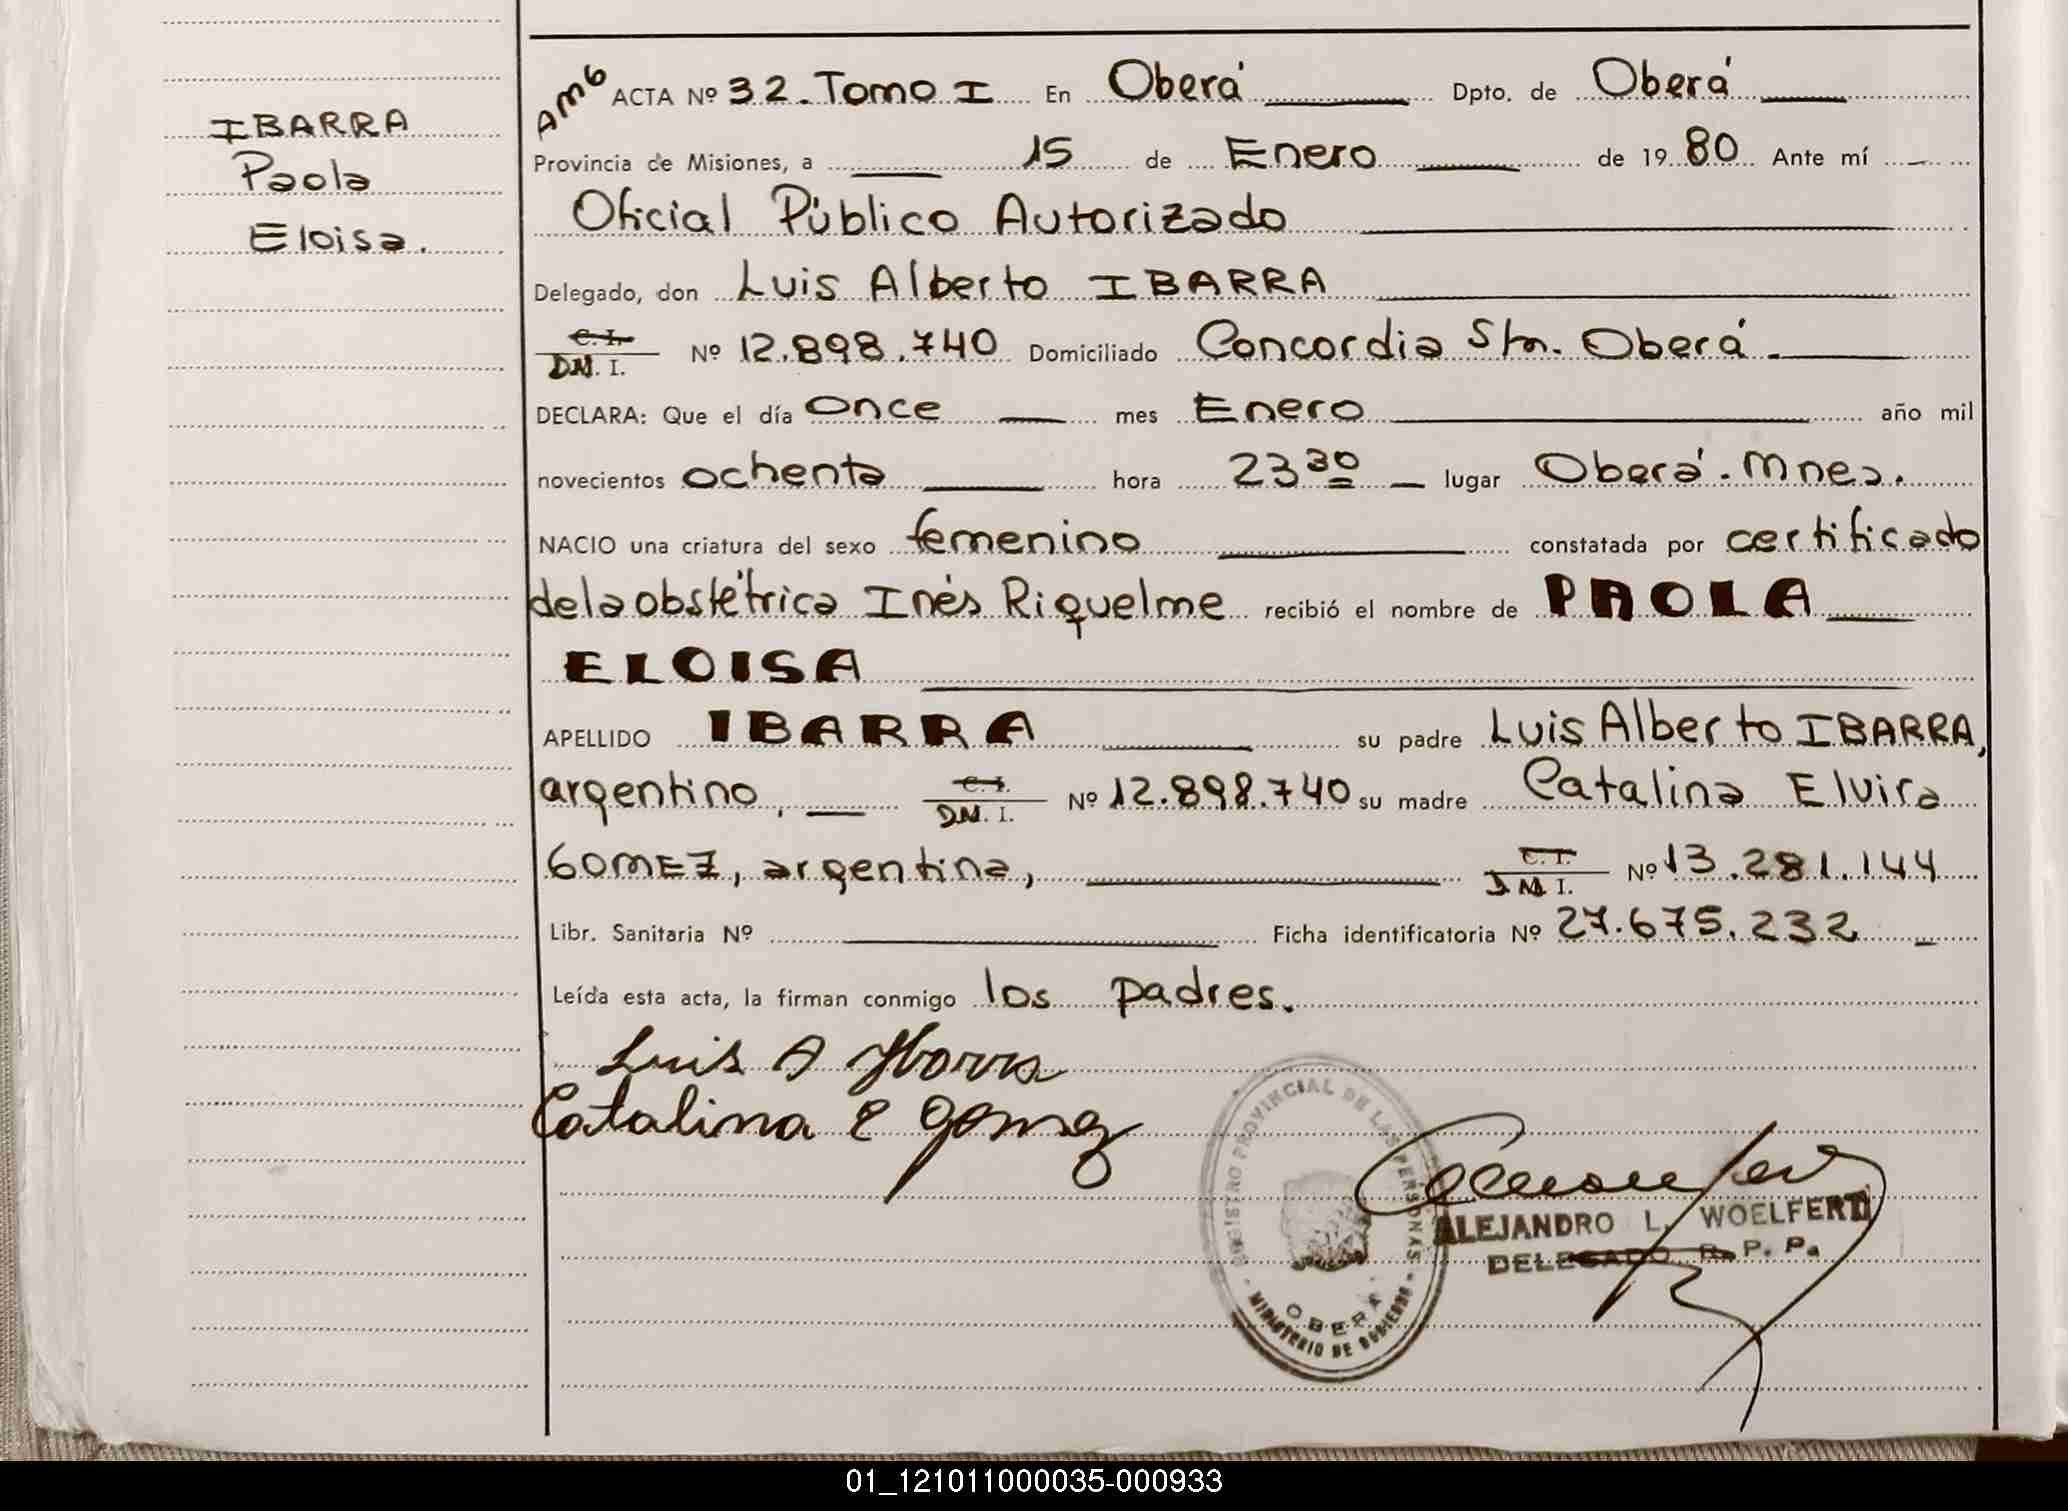 IBARRA
Paola
Eloisa.
AMG
ACTA Nº 32. Tomo I En Oberá Dpto. de Oberá
Provincia de Misiones, a 15 de Enero de 1980 Ante mí
Oficial Público Autorizado
Delegado, don Luis Alberto IBARRA
C. I.
D.N. I. Nº 12.898.740 Domiciliado Concordia S/n. Oberá.
DECLARA: Que el día once mes Enero año mil
novecientos ochenta hora 23 30 lugar Oberá. Mnes.
NACIO una criatura del sexo femenino constatada por certificado
de la obstétrica Inés Riquelme recibió el nombre de PAOLA
ELOISA
APELLIDO IBARRA su padre Luis Alberto IBARRA,
argentino, C. I.
D.N. I. Nº 12.898.740 su madre Catalina Elvira
GOMEZ, argentina, C. I.
D.N. I. Nº 13.281.144
Libr. Sanitaria Nº Ficha identificatoria Nº 27.675.232
Leída esta acta, la firman conmigo los padres.
Luis A Ibarra
Catalina E Gomez
REGISTRO PROVINCIAL DE LAS PERSONAS
OBERA
MINISTERIO DE GOBIERNO
ALEJANDRO L. WOELFERT
DELEGADO R. P. P.
01_121011000035-000933